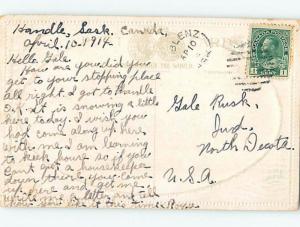 Handle, Sask. Canada,
April. 10-1914
Hello Gale
How are you did you
get to your stopping place
all right. I got to Handle
O.K. it is snowing a little
here today. I wish you
had come along up here
with me. I am learning
to keep house so if you
Cant get a housekeeper
down there you come
up here and get me
write me a letter and tell
Gale Rusk,
Jud,
North Dacota
U.S.A.
AP 10
CANADA POSTAGE
1 CENT 1